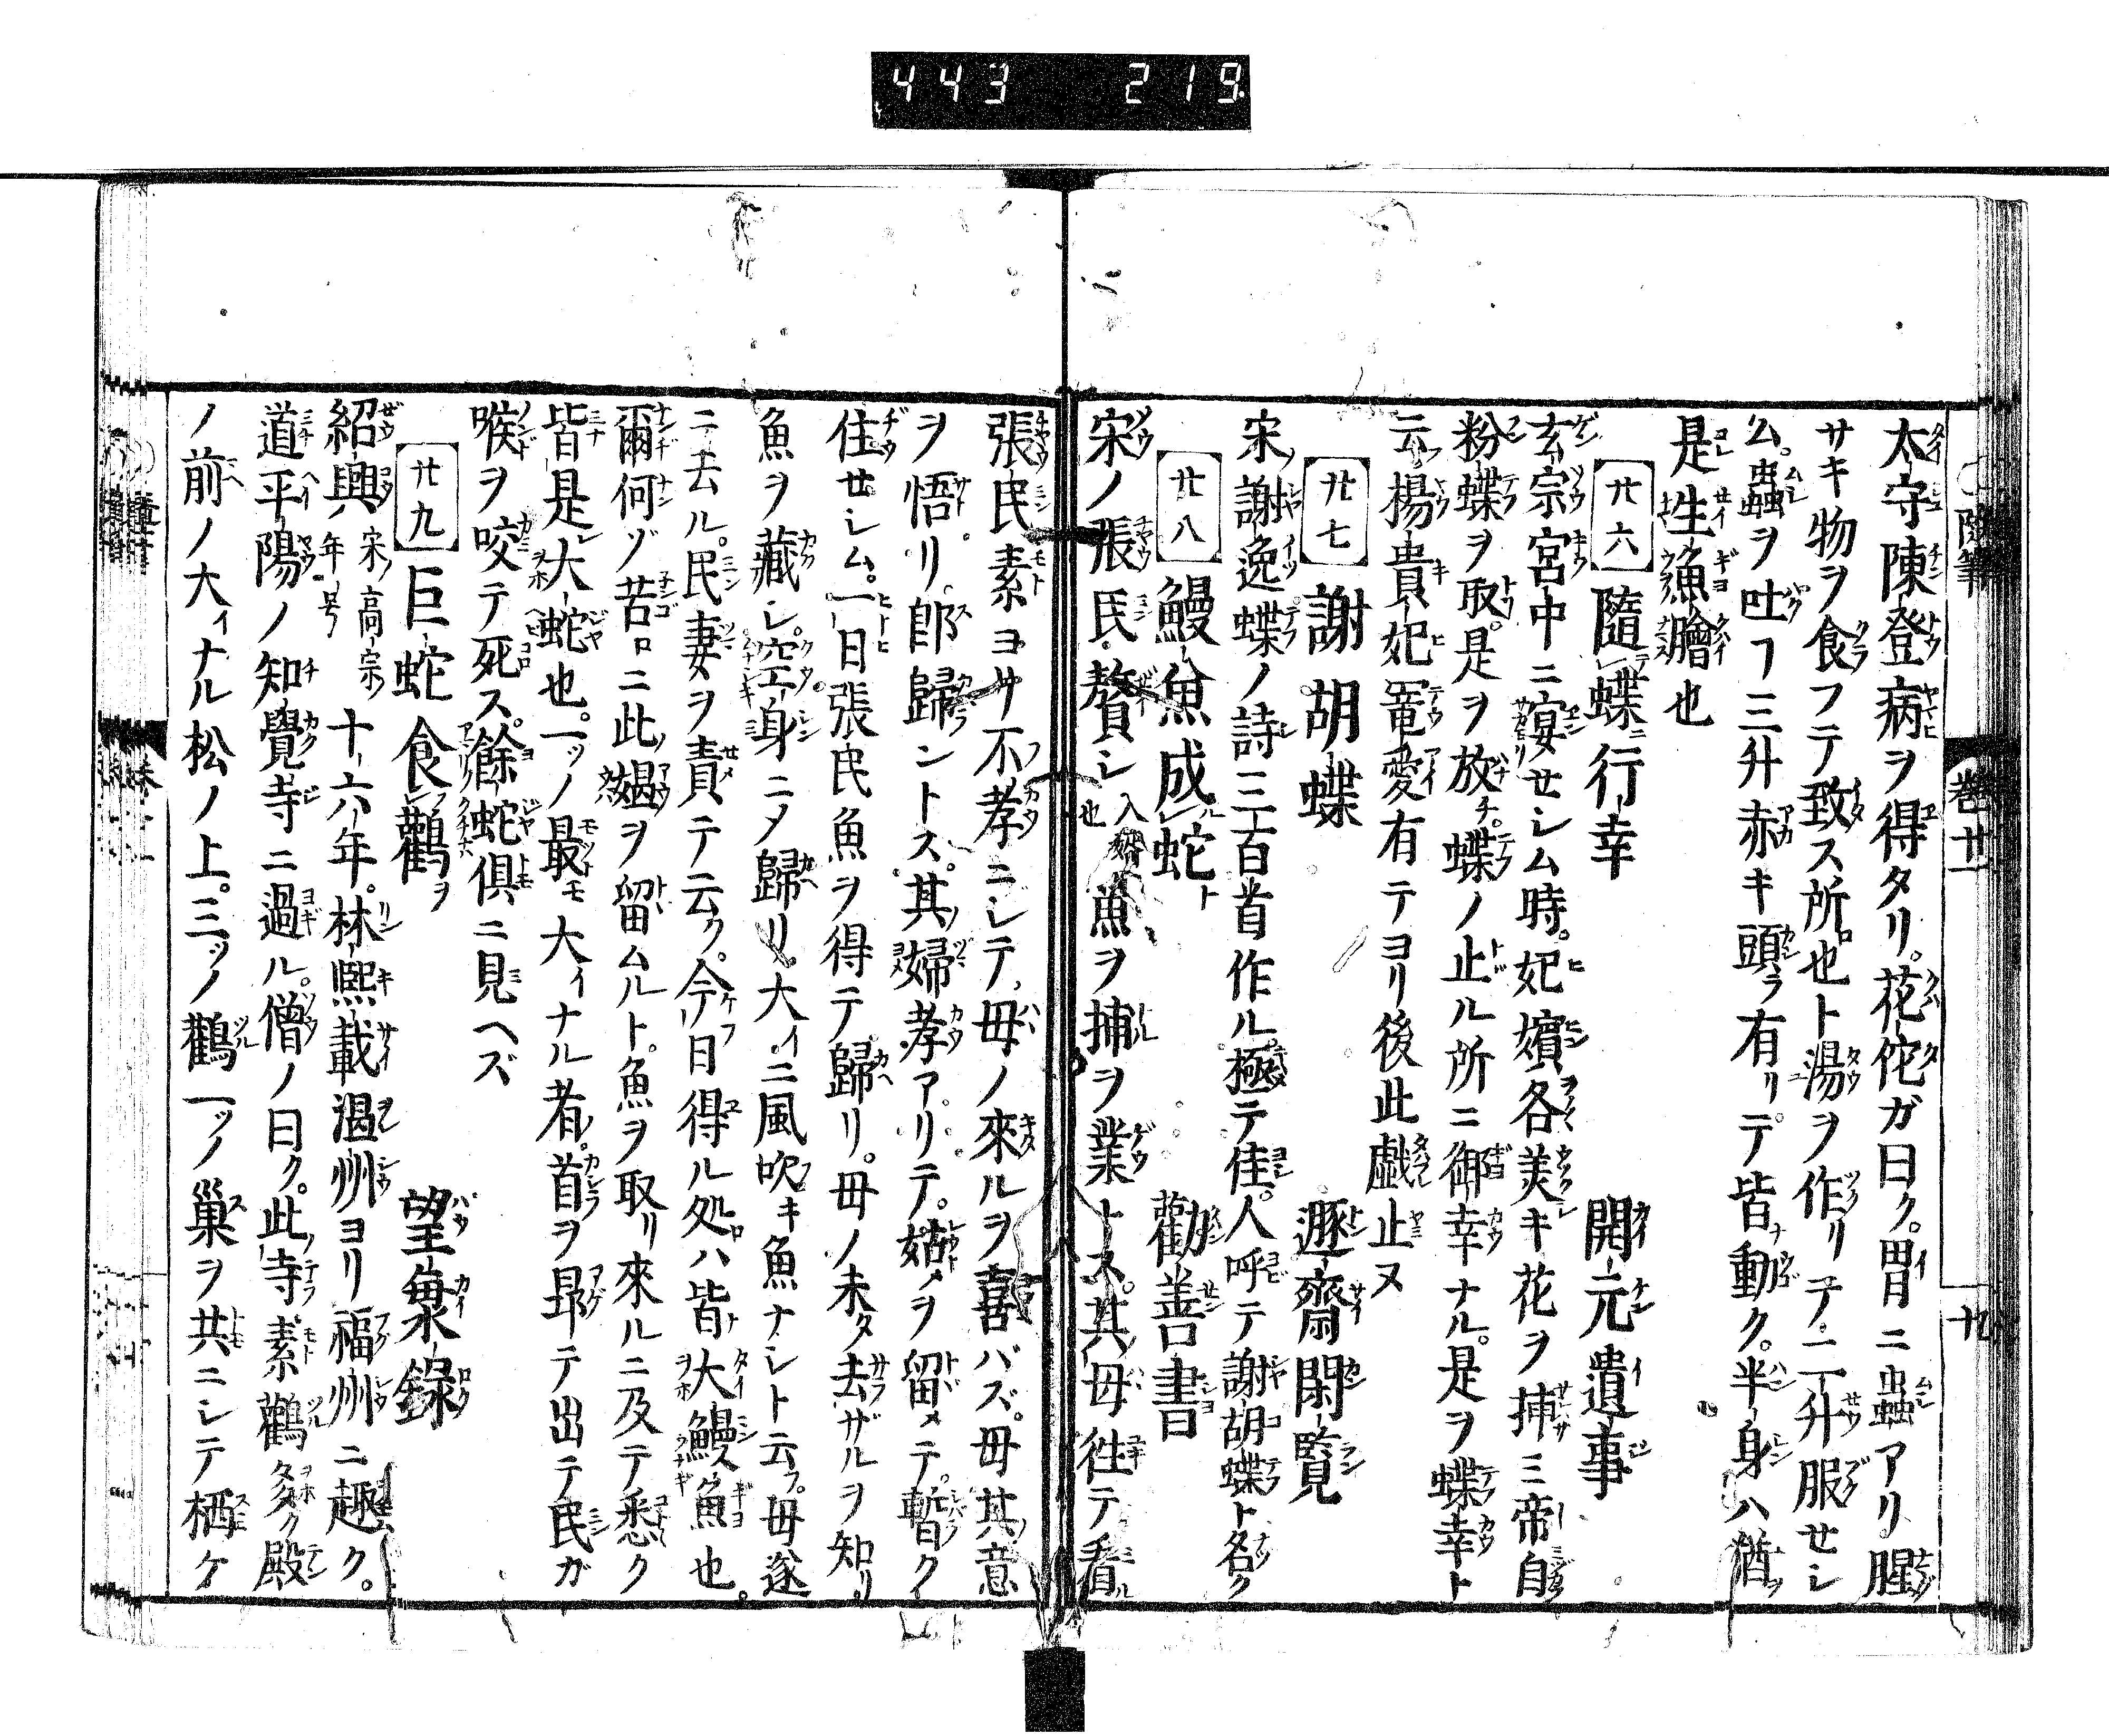 443 219
隨筆 巻廿一 十九
太守陳登病ヲ得タリ。花佗ガ曰ク。胃ニ虫蟲アリ腥
サキ物ヲ食フテ致ス所也ト湯ヲ作リテ。二升服セシ
ム。蟲ヲ吐フ三升赤キ頭ラ有リテ皆動ク。半身ハ猶
是生漁膾也
廿六 隨蝶行幸 開元遺事
玄宗宮中ニ宴セシム時。妃嬪各美キ花ヲ捕ミ帝自
粉蝶ヲ取。是ヲ放チ。蝶ノ止ル所ニ御幸ナル。是ヲ蝶幸ト
云楊貴妃寵愛有テヨリ後此戯止ヌ
廿七 謝胡蝶 遯齋閑覧
宋謝逸蝶ノ詩三百首作ル。極テ佳。人呼テ謝胡蝶ト名ク
廿八 鰻魚成蛇ト 勸善書
宋ノ張民贅シ入婿也魚ヲ捕ヲ業トス。其母往テ看ル
張民素ヨリ不孝ニシテ母ノ來ルヲ喜バズ。母其意
ヲ悟リ。郎歸ントス。其婦孝アリテ。姑ヲ留メテ。暫ク
住セシム。一日張民魚ヲ得テ歸リ。母ノ未タ去ザルヲ知リ
魚ヲ藏シ。空身ニメ歸リ。大イニ風吹キ魚ナシト云フ。母遂
ニ去ル。民妻ヲ責テ云ク。今日得ル処ハ皆大鰻魚也。
爾何ゾ苦ロニ此媼ヲ留ムルト。魚ヲ取リ來ルニ及テ悉ク
皆是大蛇也。一ツノ最モ大イナル者。首ヲ昂テ出テ民ガ
喉ヲ咬テ死ス。餘蛇俱ニ見ヘズ
廿九 巨蛇食鸛ヲ 望海錄
紹興宋ノ高宗ノ年号十六年。林熙載溫州ヨリ福州ニ趣ク。
道平陽ノ知覺寺ニ過ル。僧ノ曰ク。此寺素鸛多ク殿
ノ前ノ大イナル松ノ上。三ツノ鸛一ツノ巢ヲ共ニシテ栖ケ